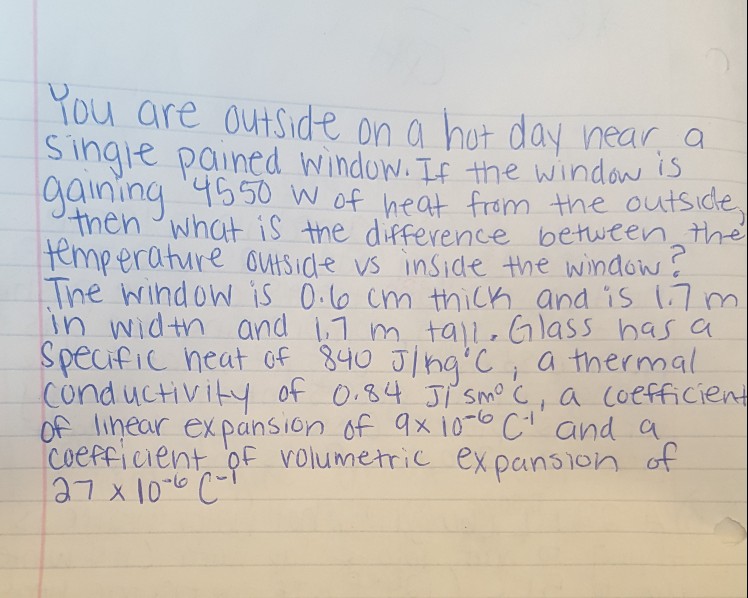 You are outside on a hot day near a
single pained window. If the window is
gaining 4550 W of heat from the outside,
then what is the difference between the
temperature outside vs inside the window?
The window is 0.6 cm thick and is 1.7 m
in width and 1.7 m tall. Glass has a
specific heat of 840 J/kg°C, a thermal
conductivity of 0.84 J/smo°C, a coefficient
of linear expansion of 9x10⁻⁶ C⁻¹ and a
coefficient of volumetric expansion of
27 x 10⁻⁶ C⁻¹